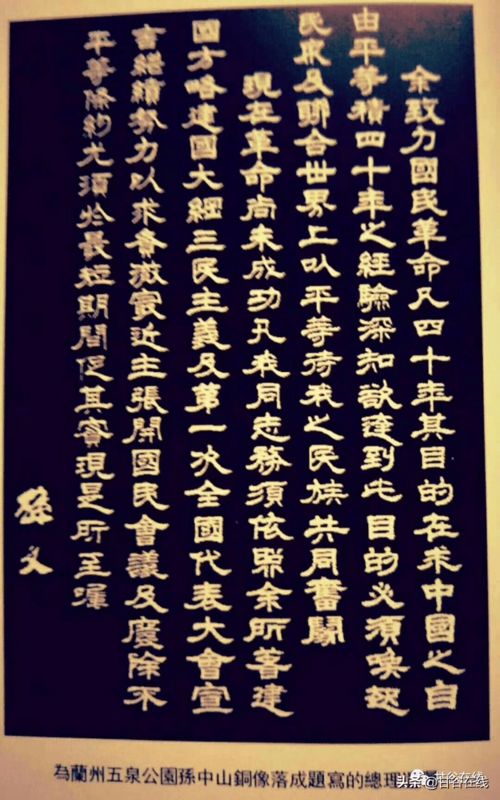 余致力國民革命凡四十年其目的在求中國之自
由平等積四十年之經驗深知欲達到此目的必須喚起
民眾及聯合世界上以平等待我之民族共同奮鬭
現在革命尚未成功凡我同志務須依照余所著建
國方略建國大綱三民主義及第一次全國代表大會宣
言繼續努力以求貫澈最近主張開國民會議及廢除不
平等條約尤須於最短期間促其實現是所至囑
孫文
為蘭州五泉公園孫中山銅像落成題寫的總理
头条@甘谷在线